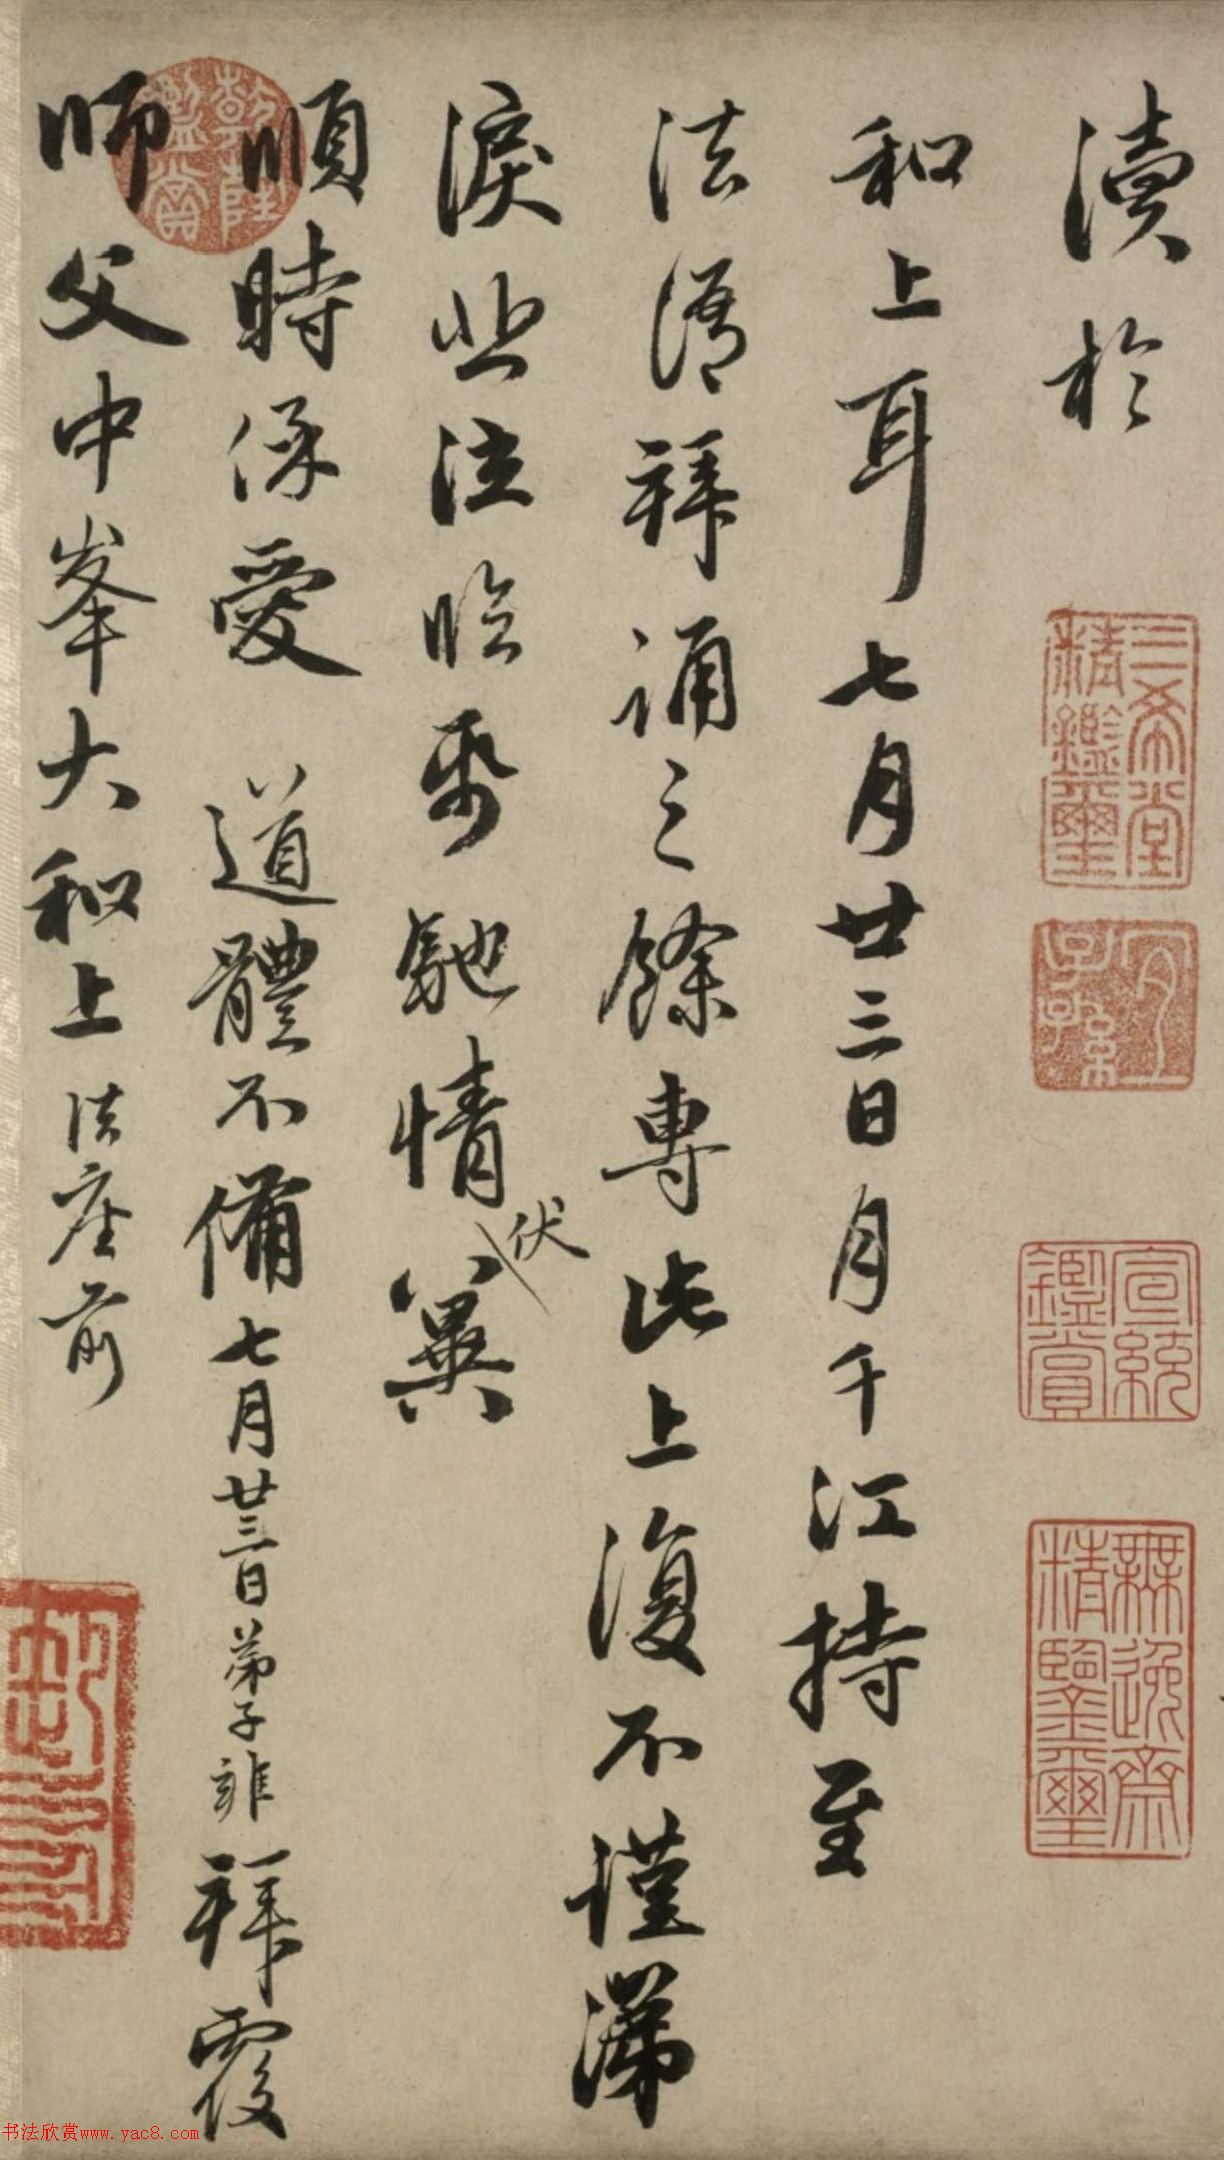 瀆於
和上耳七月廿三日月千江持至
法語拜誦之餘專此上復不謹涕
淚悲泣臨紙馳情伏冀
順時保愛 道體不備七月廿三日弟子 拜覆
師父中峯大和上 法座前
乾隆鑑賞
三希堂精鑑璽
宜子孫
宣統鑑賞
無逸齋精鑒璽
书法欣赏www.yac8.com